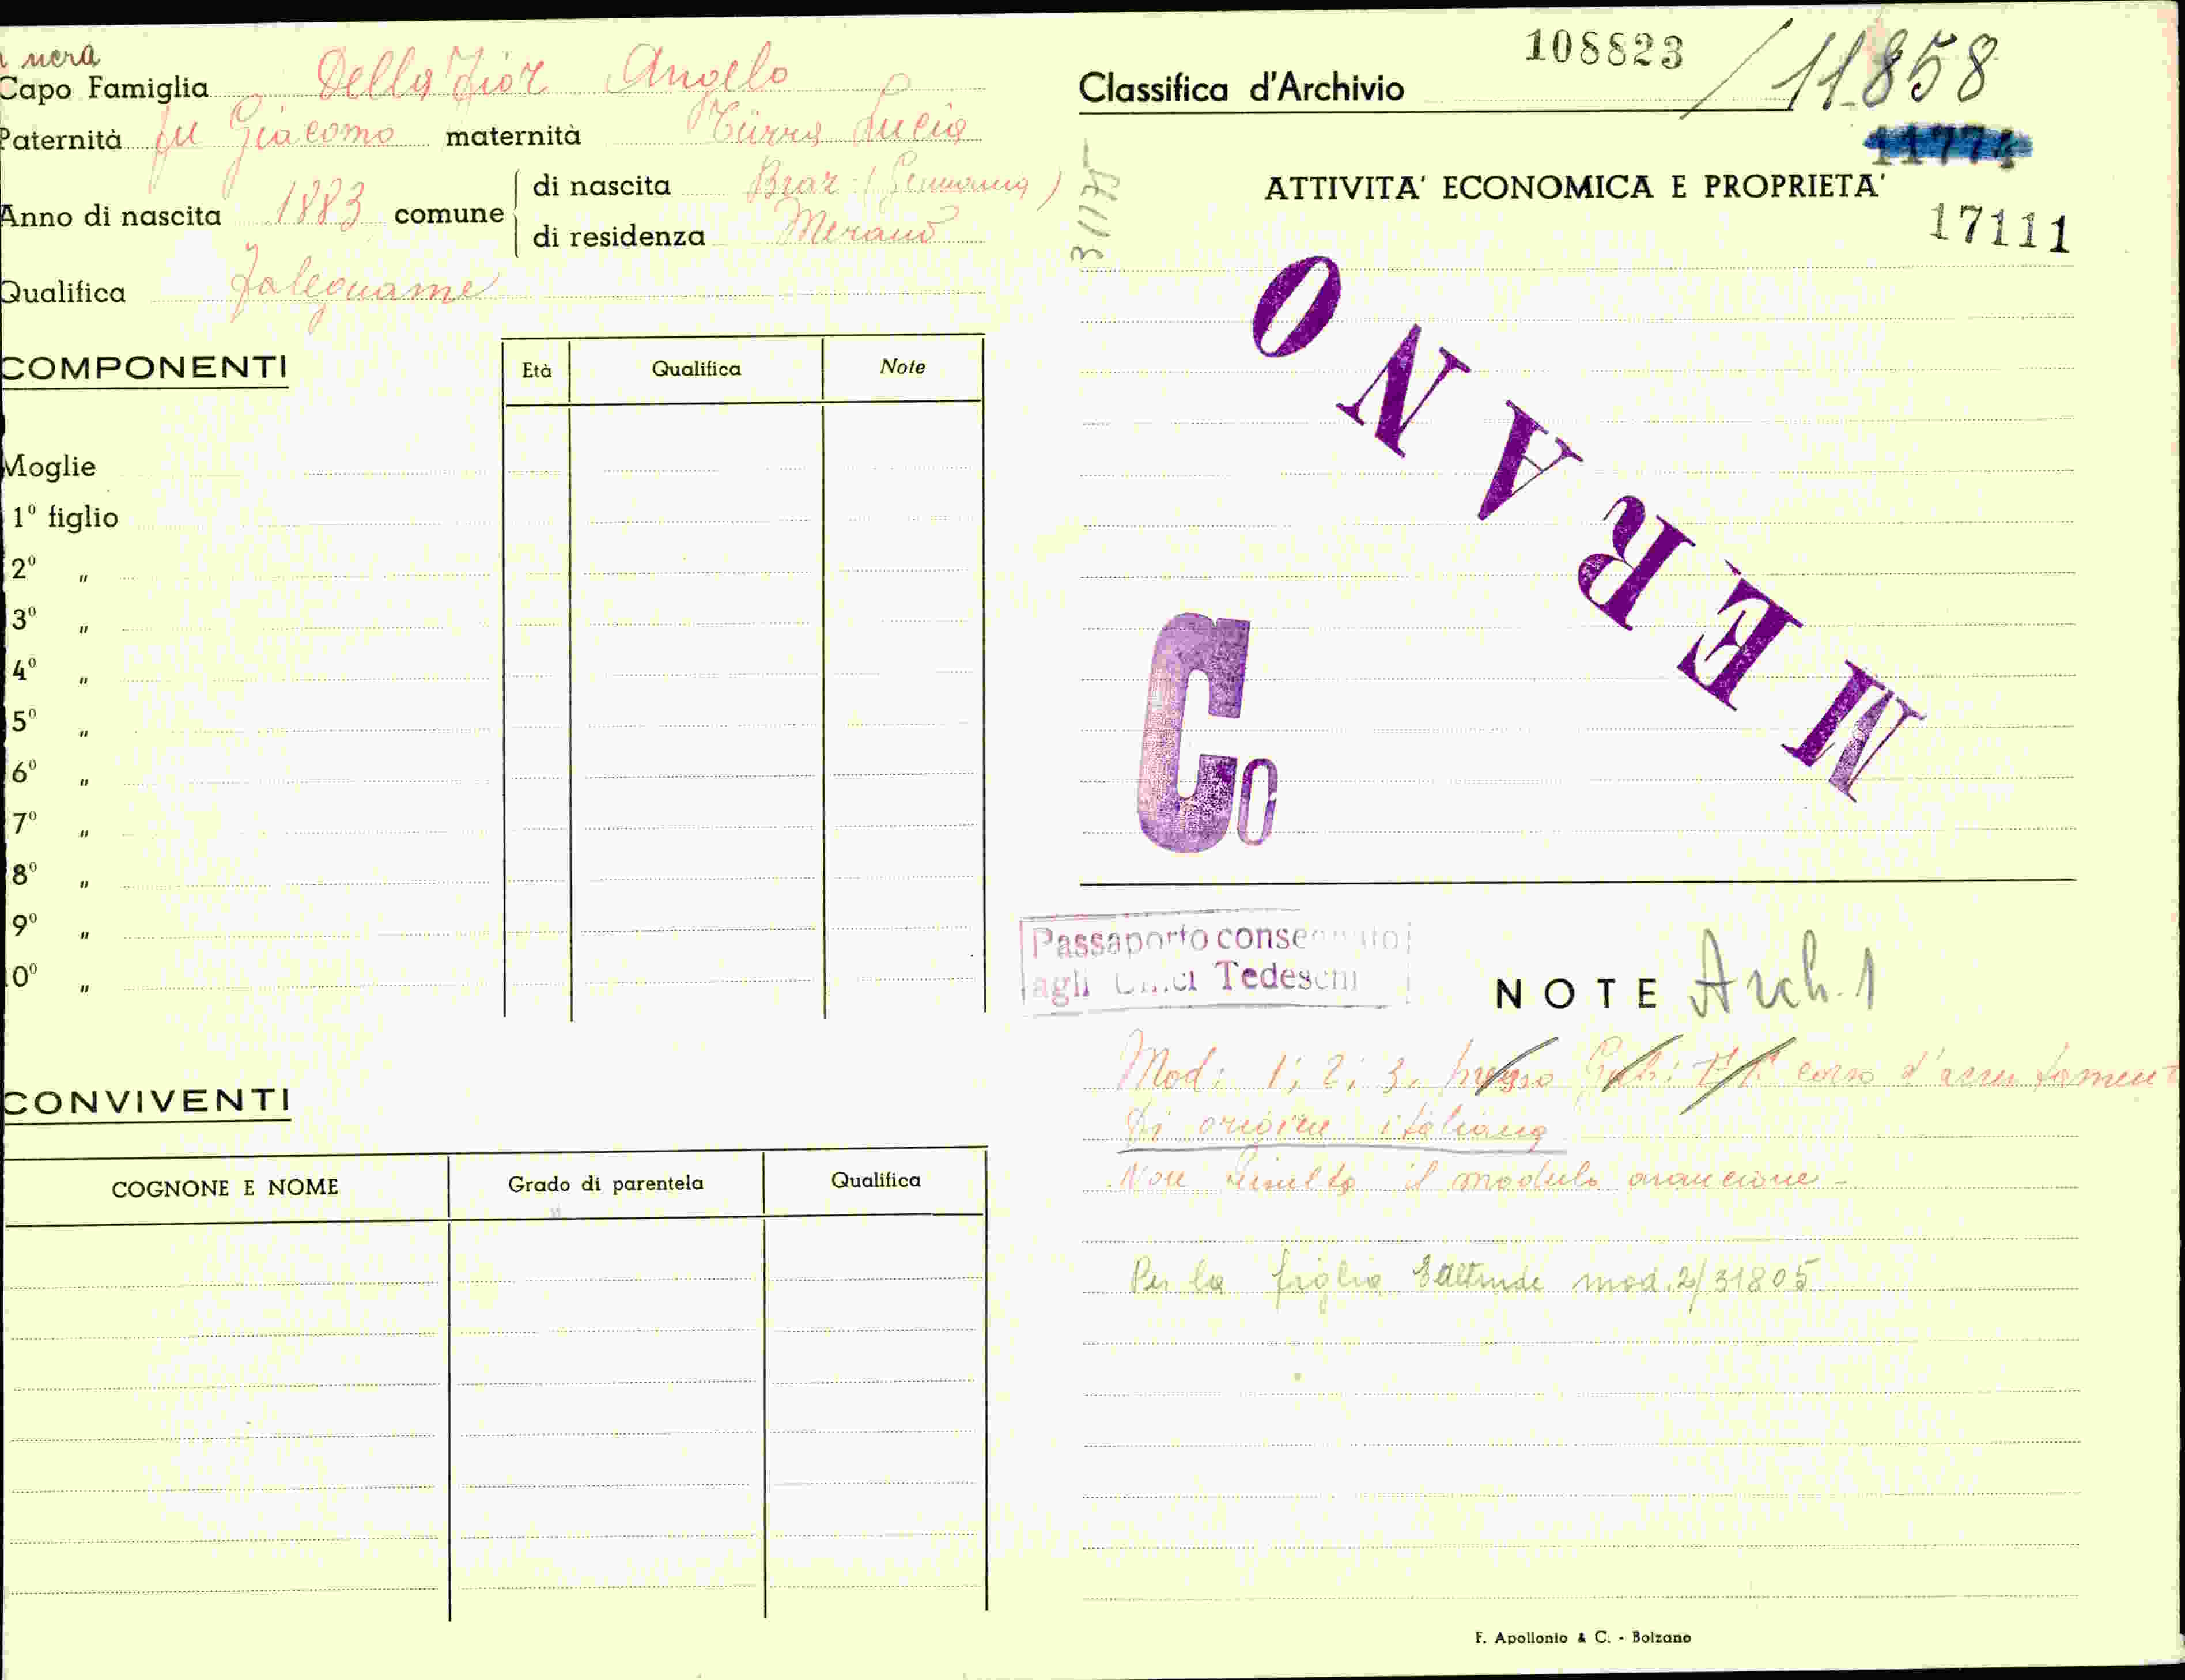 nera
Capo Famiglia Della Fior Angelo
Paternità fu Giacomo maternità Türra Lucia
Anno di nascita 1883 comune di nascita Braz (Germania)
di residenza Merano
Qualifica falegname
COMPONENTI Età Qualifica Note
Moglie
1º figlio
2º "
3º "
4º "
5º "
6º "
7º "
8º "
9º "
0º "
CONVIVENTI
COGNONE E NOME Grado di parentela Qualifica
108823 / 11858
Classifica d'Archivio
11774
31175
ATTIVITA' ECONOMICA E PROPRIETA'
17111
MERANO
Co
Passaporto consegnato
agli Uffici Tedeschi
NOTE Arch. 1
Mod: 1; 2; 3, presso corso d'accertament
Di origine italiana
Non risulta il modulo arancione -
Per la figlia mod. 2/31805
F. Apollonio & C. - Bolzano